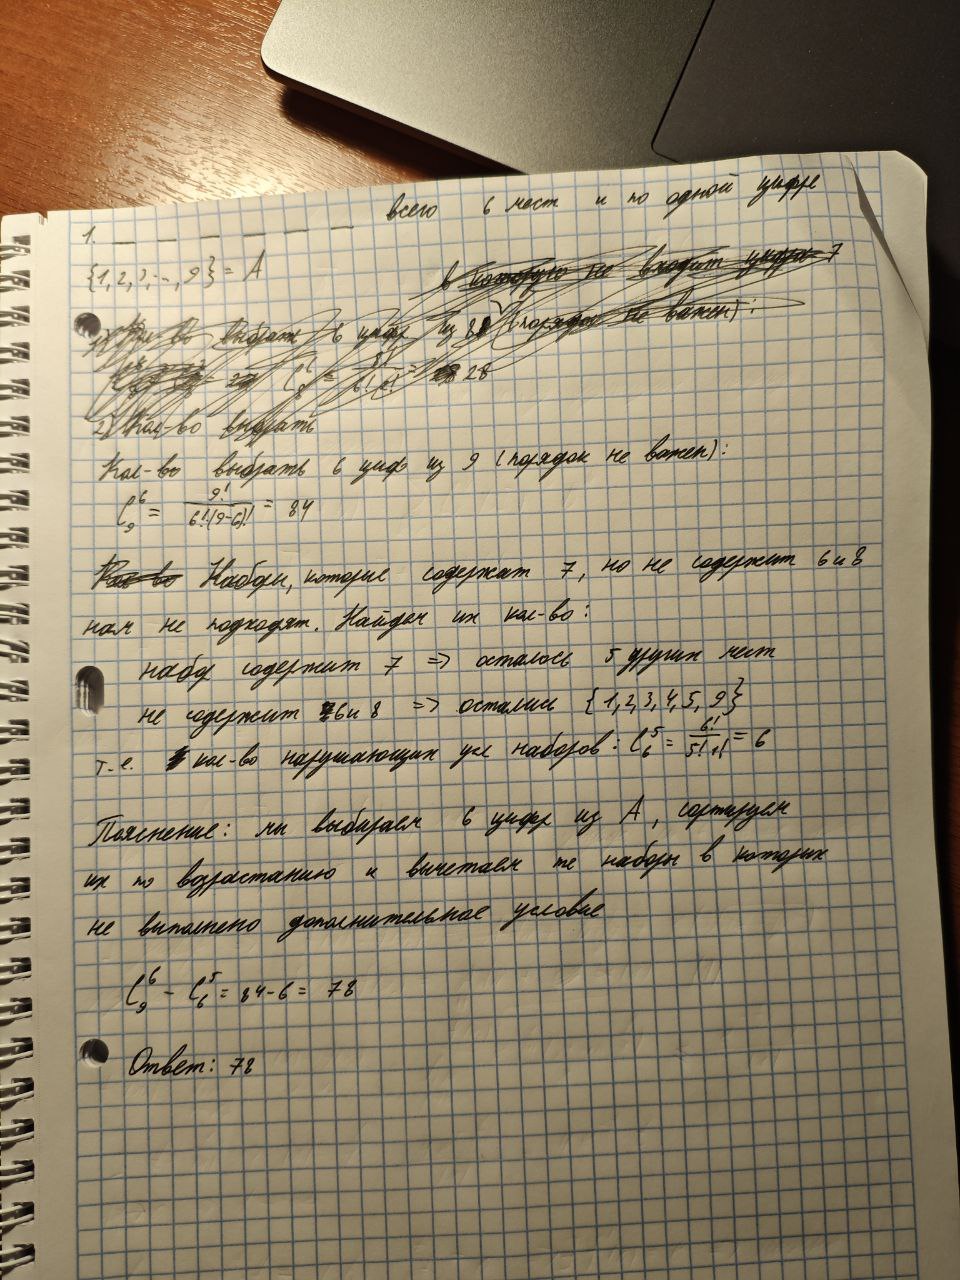 всего 6 мест и по одной цифре
1. _ _ _ _ _ _
{1, 2, 3, ..., 9} = A
в которую не входит цифра 7
выбрать 6 цифр из 8 (порядок не важен):
28
2) Кол-во выбрать
Кол-во выбрать 6 циф из 9 (порядок не важен):
C₉⁶ = 9!/6!(9-6)! = 84
Кол-во Наборы, которые содержат 7, но не содержит 6 и 8
нам не подходят. Найдем их кол-во:
набор содержит 7 => осталось 5 других мест
не содержит 6 и 8 => остались {1, 2, 3, 4, 5, 9}
т.е. кол-во нарушающих усл наборов: C₆⁵ = 6!/5!·1! = 6
Пояснение: мы выбираем 6 цифр из A, сортируем
их по возрастанию и вычетаем те наборы в которых
не выполнено дополнительное условие
C₉⁶ - C₆⁵ = 84 - 6 = 78
Ответ: 78